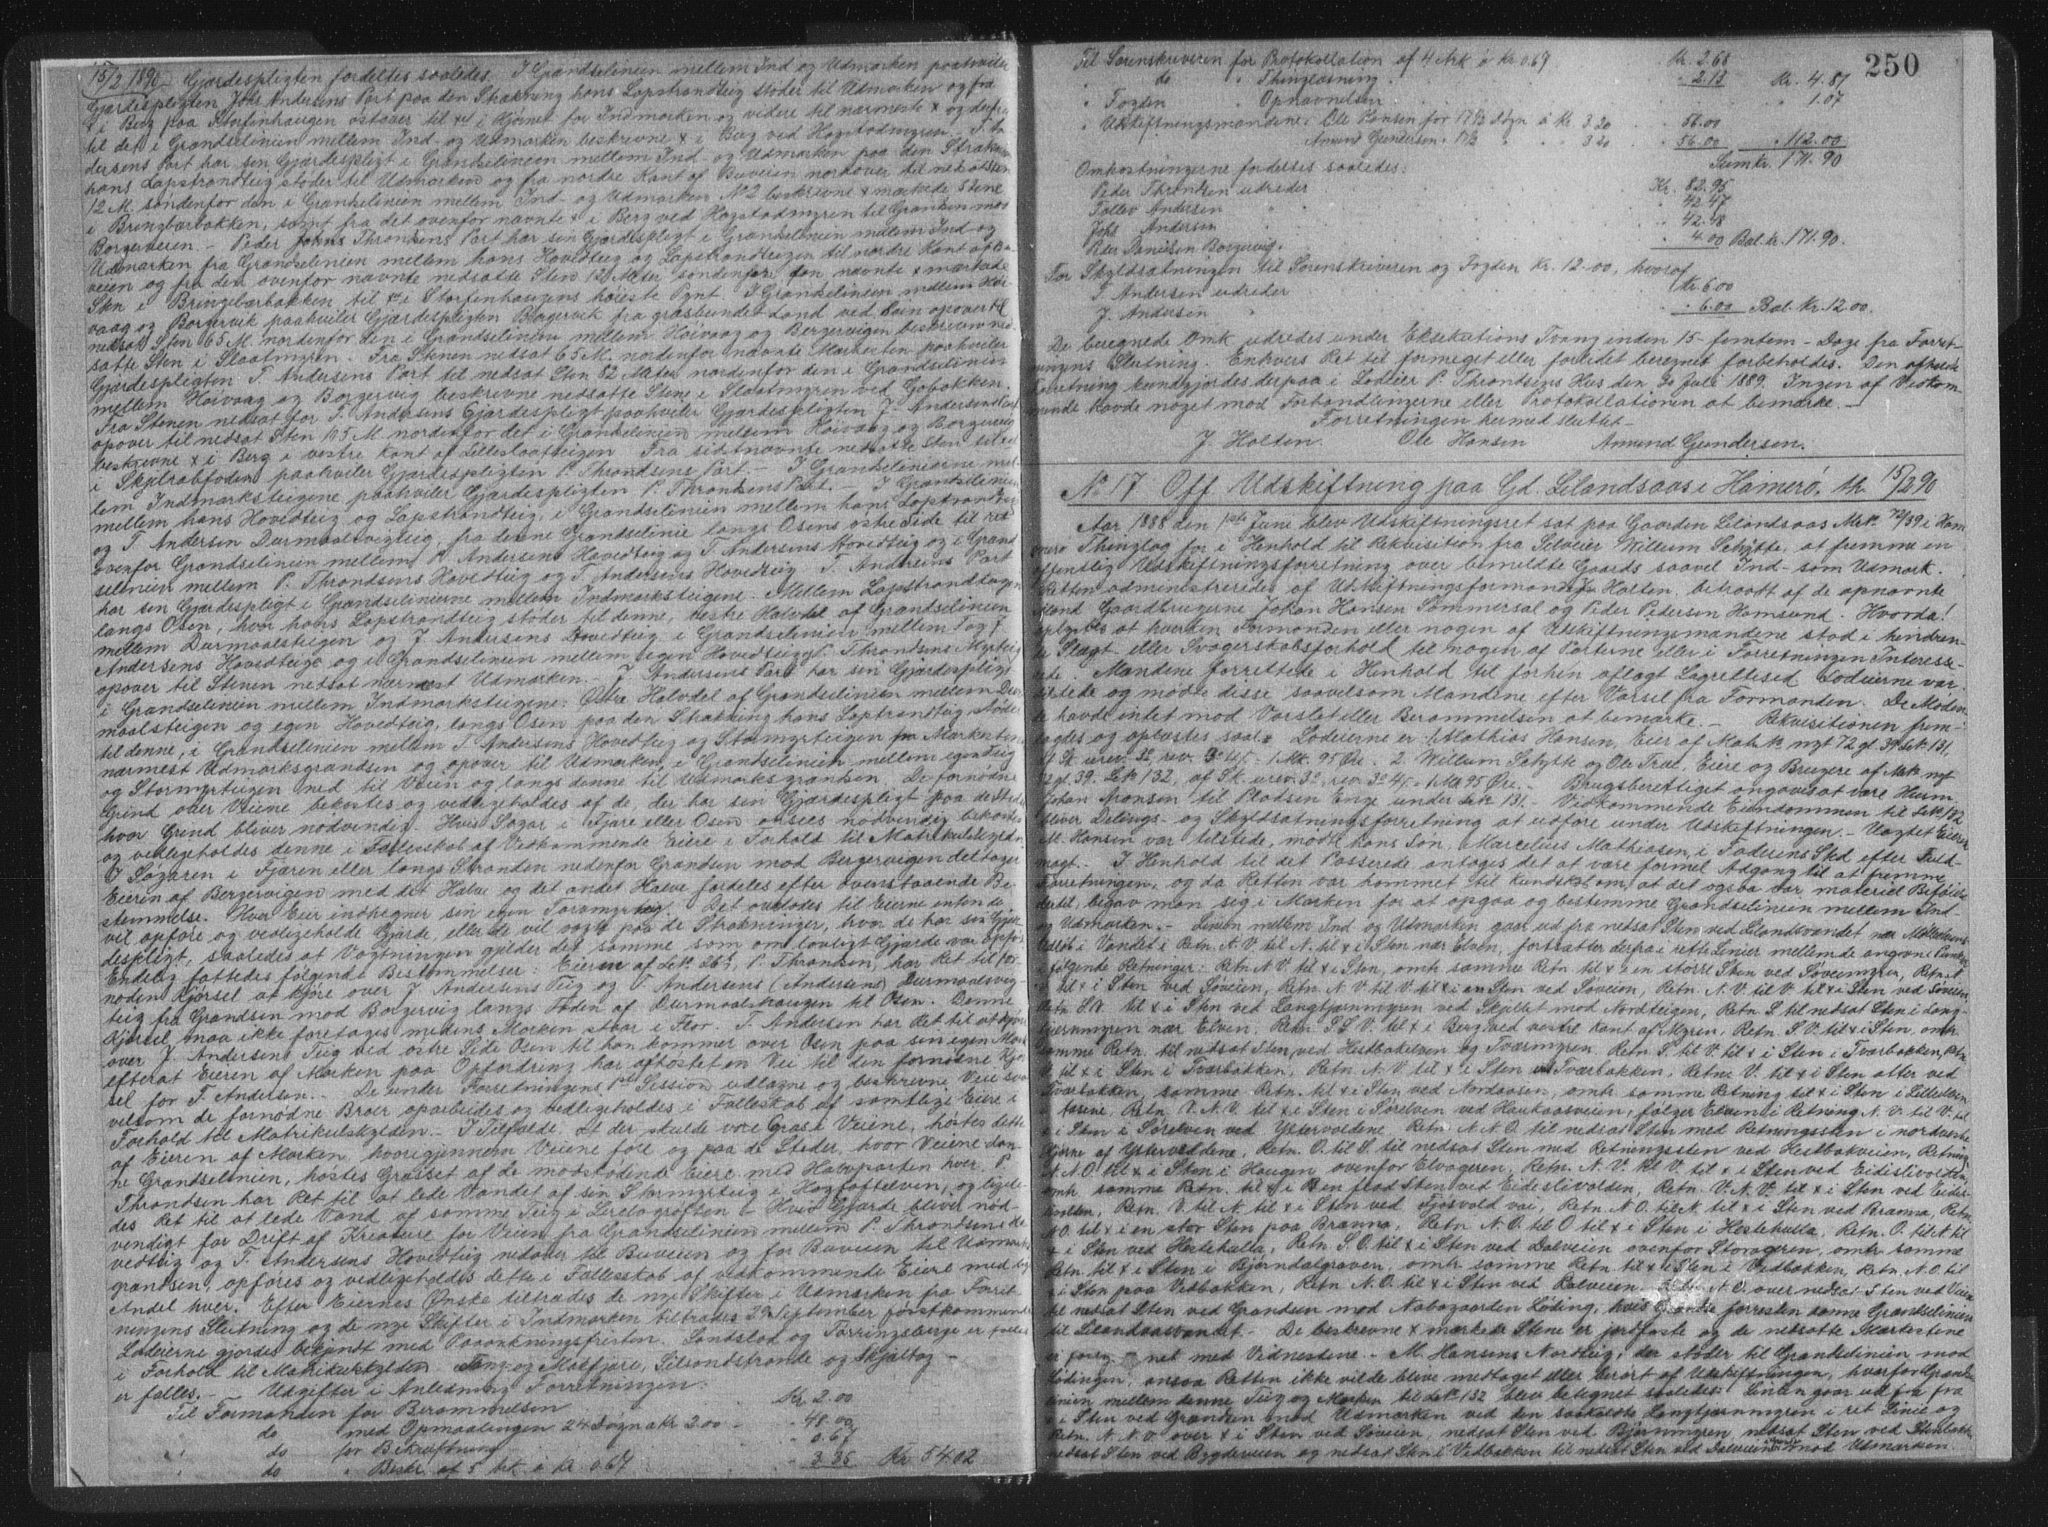 15/2 1890. Gjærdespligten fordeltes saaledes. I Grændselinien mellem Ind og Udmarken paahviler
Gjærdespligten Johs Andersens Part paa den Strækning hans Lapstrandteig støder til Udmarken og fra
x i Berg paa Storfinhaugen ostover til x i Hjørnet for Indmarken og videre til nærmeste x og derfra
til det i Grændselinien mellem Ind- og Udmarken beskrevne x i Berg ved Hogstadmyren. T. An-
dersens Part har sin Gjærdespligt i Grændselinien mellem Ind- og Udmarken paa den Strækning
hans Lapstrandteig støder til Udmarken og fra nordre Kant af Buveien nordover til nedsat Sten
12 M. søndenfor den i Grændselinien mellem Ind- og Udmarken No 2 beskrevne x mærkede Stene
i Bringbærbakken, samt fra det ovenfor nævnte x i Berg ved Hogstadmyren til Grændsen mod
Borgerveien. - Peder Johns Throndsens Part har sin Gjærdespligt i Grændselinien mellem Ind- og
Udmarken fra Grændselinien mellem hans Hovedteig og Lapstrandteigen til nordre Kant af Bu-
veien og fra den ovenfor nævnte nedsatte Sten 12 Meter søndenfor den nævnte x mærkede
Sten i Bringebærbakken til x i Storfinhaugens høieste Pynt. I Grændselinien mellem Høi-
vaag og Borgervik paahviler Gjærdespligten Borgervik fra græsbundet Land ved Søen opover til
nedsat Sten 65 M. nordenfor den i Grændselinien mellem Høivaag og Borgervigen beskrevne ned-
satte Sten i Slaatmyren. Fra Stenen nedsat 65 M. nordenfor nævnte Markesten paahviler
Gjærdespligten T. Andersens Part til nedsat Sten 82 Meter nordenfor den i Grændselinien
mellem Høivaag og Borgervig beskrevne nedsatte Stene i Slaatmyren ved Gobakken.
Fra Stenen nedsat for T. Andersens Gjærdespligt paahviler Gjærdespligten J. Andersens Part
opover til nedsat Sten 105 M nordenfor det i Grændselinien mellem Høivaag og Borgervig
beskrevne x i Berg i vestre Kant af Lilleslaatteigen. Fra sidstnævnte nedsatte Sten til x
i Skjitrabfoden paahviler Gjærdespligten P. Throndsens Part. - I Grændselinierne mel-
lem Indmarksteigene paahviler Gjærdespligten P. Throndsens Part. - I Grændselinien
mellem hans Hovedteig og Lapstrandteig, i Grændselinien mellem hans Lapstrandteig
og T. Andersen Durmaalsvigteig, fra denne Grændselinie langs Osens østre Side til ret
ovenfor Grændselinien mellem P. Andersens Hovedteig og T. Andersens Hovedteig og i Grænd-
selinien mellem P. Throndsens Hovedteig og T. Andersens Hovedteig. T. Andersens Part
har sin Gjærdespligt i Grændselinierne mellem Indmarksteigene. Mellem Lapstrandteigen
langs Osen, hvor hans Lapstrandteig støder til denne, vestre Halvdel af Grændselinien
mellem Durmaalsteigen og J. Andersens Hovedteig i Grændselinien mellem T og J
Andersens Hovedteige og i Grændselinien mellem egen Hovedteig og P. Throndsens Myrteig
opover til Stenen nedsat nærmest Udmarken. - J Andersens Part har sin Gjærdespligt
i Grændselinien mellem Indmarksteigene: Østre Halvdel af Grændselinien mellem Dur-
maalsteigen og egen Hovedteig, langs Osen paa den Strækning hans Lapstrandteig støder
til denne, i Grændselinien mellem T. Andersens Hovedteig og Stormyrteigen fra Markesten
nærmest Udmarksgrændsen og opover til Udmarken, i Grændselinien mellem egen Teig
og Stormyrteigen ned til Veien og langs denne til Udmarksgrændsen. De fornødne
Grind over Veiene bekostes og vedligeholdes af de, der har sin Gjærdespligt paa det Sted,
hvor Grind bliver nødvendig. Hvis Sagar i Fjære eller Osen ansees nødvendig bekostes
og vedligeholdes denne i Fællesskab af Vedkommende Eiere i Forhold til Matrikulskylden.
I Sagaren i Fjæren eller langs Stranden nedenfor Grændsen mod Borgervigen deltager
Eieren af Borgervigen med det Halve og det andet Halve fordeles efter ovenstaaende Be-
stemmelse. Hver Eier indhegner sin egen Torvmyrteig. Det overlades til Eierne enten de
vil opføre og vedligeholde Gjærde, eller de vil vogte paa de Strækninger, hvor de har sin Gjær-
despligt, saaledes at Vogtningen gjelder det samme som om lovligt Gjærde var opført.
Endelig fattedes følgende Bestemmelser: Eieren af Lø No 26b, P. Throndsen, har Ret til for-
nøden Kjørsel at kjøre over J Andersens Teig og T. Andersens (Andersens) Durmaalsvig-
teig fra Grændsen mod Borgervig langs Foden af Durmaalshaugen til Osen. Denne
Kjørsel maa ikke foretages medens Marken staar i Flor. T. Andersen har Ret til at kjøre
over J. Andersens Teig ved østre Side Osen til han kommer over Osen paa sin egen Mark
efterat Eieren af Marken paa Opfordring har afhøstet en Vei til den fornødne Kjør-
sel for T. Andersen. - De under Forretningens 1ste Session udlagte og beskrevne Veie saa-
velsom de fornødne Broer oparbeides og vedligeholdes i Fællesskab af samtlige Eiere i
Forhold til Matrikulskylden. - I Tilfælde, at der skulde voxe Græs i Veiene, høstes dette
af Eieren af Marken, hvorigjennem Veiene føre og paa de Steder, hvor Veiene dan-
ne Grændselinien, høstes Græsset af de modstødende Eiere med Halvparten hver. P.
Throndsen har Ret til at lede Vandet af sin Stormyrteig i Hogfaltelven, og ligele-
des Ret til at lede Vand af samme Teig i Lerelagrøften. Hvis Gjærde bliver nød-
vendigt for Drift af Kreature for Veien fra Grændselinien mellem P. Throndsens Ho-
vedteig og T. Andersens Hovedteig nedover til Buveien og for Buveien til Udmarks-
grændsen, opføres og vedligeholdes dette i Fællesskab af vedkommende Eiere med lige
Andel hver. Efter Eiernes Ønske tiltrædes de nye Skifter i Udmarken fra Forret-
ningens Slutning og de nye Skifter i Indmarken tiltrædes 29 September førstkommende
Lodeierne gjordes bekjendt med Paaankningsfristen. Landslod og Tørringsberge er fælles
i Forhold til Matrikulskylden. Tang og Molfjære, Silsandstrande og Skjæltag
er fælles. - Udgifter i Anledning Forretningen.
Til Formanden for Berammelsen Kr 2.00
do med Opmaalingen 24 Døgn a Kr 2.00 - 48.00
do for Bekræftning - 0.67
do " Beskr. af 5 Ark a Kr 0.67 - 3.35 Kr 54.02
250
Til Sorenskriveren for Protokollation af 4 Ark á Kr 0.67 Kr. 2.68
" do " Thinglæsning " 2.13 Kr. 4.81
" Fogden " Opnævnelsen 1.07
" Udskiftningsmændene: Ole Hansen for 17½ Døgn á Kr 3.20 " 56.00
Amund Gundersen " 17½ " " 3.20 " 56.00 " 112.00
Sum kr. 171.90
Omkostningerne fordeltes saaledes:
Peder Throndsen udreder Kr. 82.95
Tollev Andersen " " 42.47
Johs Andersen " " 42.48
Peter Danielsen Borgervig. " 4.00 Bal. kr. 171.90.
For Skyldsætningen til Sorenskriveren og Fogden Kr. 12.00, hvoraf
T. Andersen udreder Kr 6.00
J. Andersen " " 6.00 Bal. Kr. 12.00.
De beregnede Omk. udredes under Eksekutions Tvang inden 15 - femten - Dage fra Forret-
ningens Slutning. Enhvers Ret til formeget eller forlidet beregnet forbeholdes. Den afholdte
Forretning kundgjordes derpaa i Lodeier P. Throndsens Hus den 20 Juli 1889. Ingen af Vedkom-
mende havde noget mod Forhandlingerne eller Protokollationen at bemærke. -
Forretningen hermed sluttet -
J Holten. Ole Hansen Amund Gundersen.
No 17 Off Udskiftning paa Gd. Lilandsaas i Hamerø, th. 15/2 90
Aar 1888 den 1ste Juni blev Udskiftningsret sat paa Gaarden Lilandsaas M.No. 72/39 i Ham-
merø Thinglag for i Henhold til Rekvisition fra Selveier Willum Schytte, at fremme en
offentlig Udskiftningsforretning over bemeldte Gaards saavel Ind- som Udmark.
Retten administreredes af Udskiftningsformand J. Holten, betraadt af de opnævnte
Mænd Gaardbrugerne Johan Hansen Sommersæl og Peder Pedersen Hamsund. Hvorda!
oplystes at hverken Formanden eller nogen af Udskiftningsmændene stod i hindren-
de Slægt eller Svogerskabsforhold til nogen af Parterne eller i Forretningen Interesse-
rede. Mændene forrettede i Henhold til forhen aflagt Lagrettesed. Lodeierne var
tilstede og mødte disse saavelsom Mændene efter Varsel fra Formanden. De Møden-
de havde intet mod Varslet eller Berammelsen at bemærke. - Rekvisitionen frem-
lagdes og oplæstes saal. Lodeierne er: Mathias Hansen, Eier af Matr No nyt 72 gl. 39 Løb 131,
af Sk. urev. 3o, rev. 3o 4/- 1 Mk. 95 Øre. 2 Willum Schytte og Ole Trul. Eiere og Brugere af Mk nyt
72 gl. 39. Løb 132, af Sk. urev. 3o, rev. 3o 4/- 1 Mk 95 Øre. - Brugsberettiget angaves at være Husm.
Johan Aronsen til Pladsen Enge under Løb 131. - Vedkommende Eiendommen til Løb 132
bliver Delings- og Skyldsætningsforretning at udføre under Udskiftningen. - Uagtet Eieren
M. Hansen var tilstede, mødte hans Søn, Marcelius Mathiasen, i Faderens Sted efter Fuld-
magt. - I Henhold til det Passerede antoges det at være formel Adgang til at fremme
Forretningen, og da Retten var kommet til Kundskab om, at det ogsaa var materiel Beføielse
dertil, begav man sig i Marken for at opgaa og bestemme Grændselinien mellem Ind-
og Udmarken. - Linien mellem Ind og Udmarken gaar ud fra nedsat Sten ved Lilandsvandet nær Møllerens
Udløb i Vandet i Retn. N.V. til N. til x i Sten nær Elven, fortsætter derfra i rette Linier mellem de angivne Punkter
i følgende Retninger: Retn. N.V. til x i Sten, omtr samme Retn til x i en større Sten ved Søveimyren, Retn. N.
V. til x i Sten ved Søveien, Retn. N.V. til V. til x i en Sten ved Søveien, Retn. N.V. til V. til x i Sten ved Søveien,
Retn. S.V. til x i Sten ved Langtjernmyren ved Skillet mod Nordteigen, Retn. S. til nedsat Sten i Lang-
tjernmyren nær Elven, Retn. S.S.V. til x i Berg ved vestre Kant af Myren, Retn. S.V. til x i Sten, omtr
samme Retn. til nedsat Sten ved Hestbakelven og Tværmyren. Retn. S. til V. til x i Sten i Tværbakken, Retn.
V. til x i Sten i Tværbakken, Retn. N.V. til x i Sten ved Tværbakken, Retn. V. til x i Sten atter ved
Tværbakken, samme Retn. til x i Sten ved Nordaasen, omtr samme Retning til x i Sten i Lilleelven
i Aasene, Retn. V.N.V. til x i Sten i Sørelven ved Haukaasveien, følger Elven i Retning N.V. til V. til
x i Sten i Sørelven ved Ystervoldene. Retn. N.N.O. til nedsat Sten med Retningssten i nordvestre
Hjørne af Ystervoldene, Retn. O. til S. til nedsat Sten med Retningssten ved Hestbakveien, Retning
N.N.O. til x i Sten i Haugen ovenfor Elvageren. Retn. N.V. til V. til x i Sten ved Eidislivolden,
omtr samme Retn. til x i en flad Sten ved Eideslivolden, Retn. V.N.V. til x i Sten ved Eides-
bolten, Retn. V. til N. til x i Sten ved Fjøsvold vai, Retn. N.O. til N. til x i Sten ved Branna, Retn.
N.O. til x i en stor Sten paa Branna, Retn. N.O. til O. til x i Sten i Hestehulla, Retn. O. til N til
x i Sten ved Hestehulla, Retn. S.O. til x i Sten ved Dalveien ovenfor Storageren. omtr samme
Retn. til x i Sten i Bjørndalgraven, omtr samme Retn til x i Sten i Vedbakken, Retn. N.O. til
x i Sten paa Vedbakken, Retn. N.O. til x i Sten ved Kalveien, Retn. N.O. over nedsat Sten ved Veien
til nedsat Sten ved Grændsen mod Nabogaarden Løding, hvis Grændse forresten danne Grændselinien
til Lilandsaasvandet. - De beskrevne x mærkede Stene er jordfaste og de nedsatte Markestene
er forsynet med Vidnestene. - M. Hansens Nordteig, der støder til Grændselinien mod
Lødingen, ansaa Retten ikke vilde blive medtaget eller berørt af Udskiftningen, hvorfor Grænd-
selinien mellem denne Teig og Marken til Løb 132 blev betegnet saaledes: Linien gaar ud fra
x i Sten ved Grændsen mod Udmarken ved den saakaldte Langtjernmyren i ret Linie og
Retn. N.N.O. over x i Sten ved Søveien, nedsat Sten ved Bjørnmyren, nedsat Sten ved Stenbakk
nedsat Sten ved Bygdeveien og nedsat Sten i Vedbakken til nedsat Sten ved Dalveien mod Udmarken